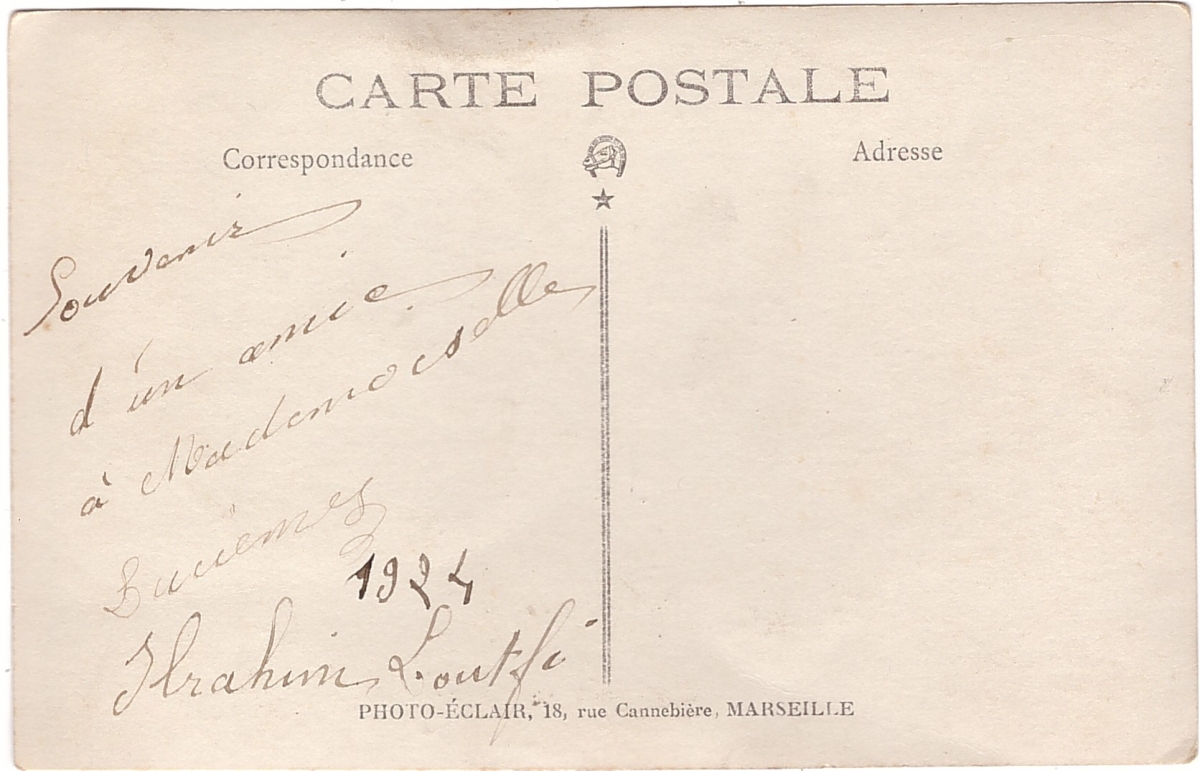 CARTE POSTALE
Correspondance
Adresse
Souvenir
d'un amie
à Mademoiselle
1924
Ibrahim Loutfi
PHOTO-ÉCLAIR, 18, rue Cannebière, MARSEILLE